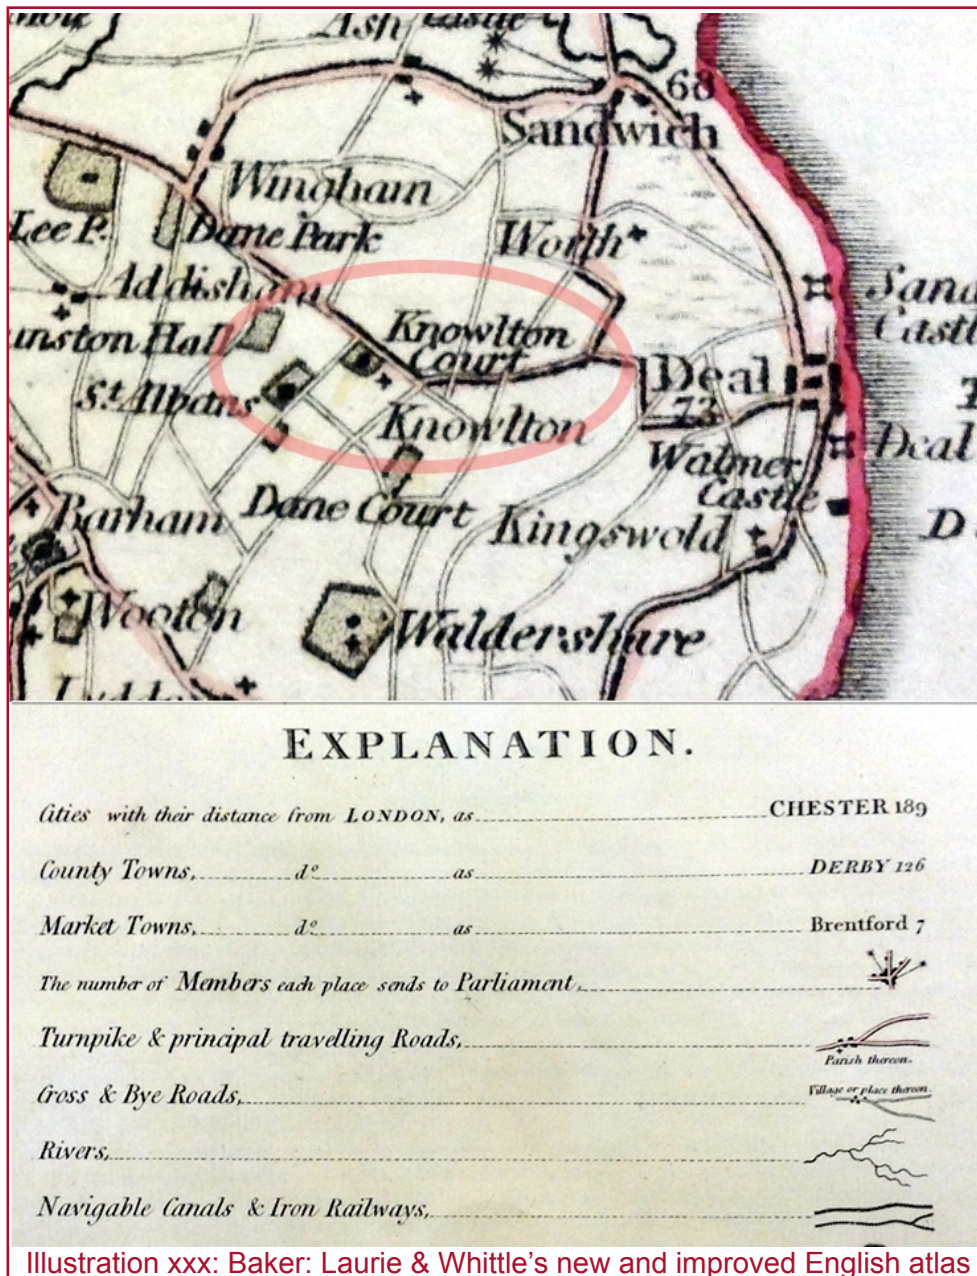 Ash
Castle
68
Sandwich
Wingham
Lee P.
Dane Park
Worth
Addisham
Sand
Castl
unston Hall
Knowlton
Court
St. Albans
Deal
73
Knowlton
Deal
Walmer
Castle
Barham
Dane Court
Kingswold
D
Wooton
Waldershare
EXPLANATION.
Cities with their distance from LONDON, as CHESTER 189
County Towns, do as DERBY 126
Market Towns, do as Brentford 7
The number of Members each place sends to Parliament,
Turnpike & principal travelling Roads,
Parish thereon.
Cross & Bye Roads, Village or place thereon.
Rivers,
Navigable Canals & Iron Railways,
Illustration xxx: Baker: Laurie & Whittle’s new and improved English atlas